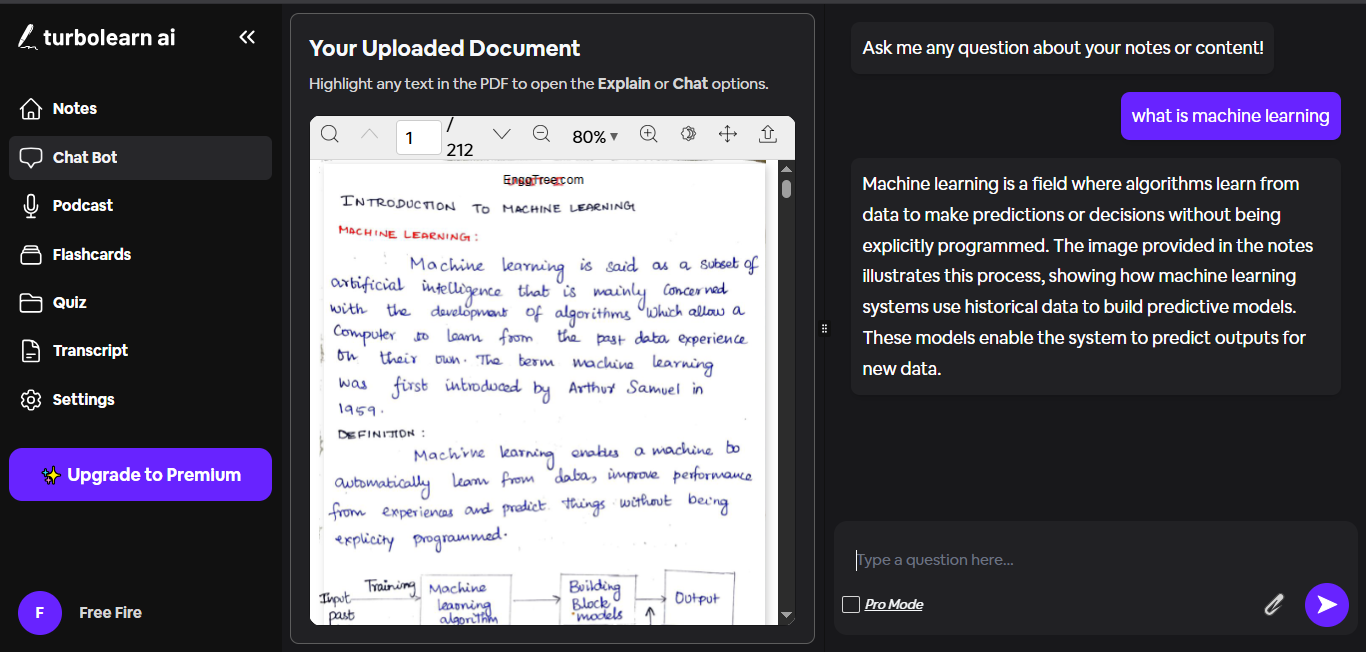 turbolearn ai
Notes
Chat Bot
Podcast
Flashcards
Quiz
Transcript
Settings
✨ Upgrade to Premium
F
Free Fire
Your Uploaded Document
Highlight any text in the PDF to open the Explain or Chat options.
1
/
212
80%
EnggTree.com
INTRODUCTION TO MACHINE LEARNING
MACHINE LEARNING :
Machine learning is said as a subset of
artificial intelligence that is mainly concerned
with the development of algorithms which allow a
Computer to learn from the past data experience
on their own. The term machine learning
was first introduced by Arthur Samuel in
1959.
DEFINITION :
Machine learning enables a machine to
automatically learn from data, improve performance
from experiences and predict things without being
explicity programmed.
Input
past
Training
Machine
learning
algorithm
Building
Block
models
Output
Ask me any question about your notes or content!
what is machine learning
Machine learning is a field where algorithms learn from
data to make predictions or decisions without being
explicitly programmed. The image provided in the notes
illustrates this process, showing how machine learning
systems use historical data to build predictive models.
These models enable the system to predict outputs for
new data.
Type a question here...
Pro Mode